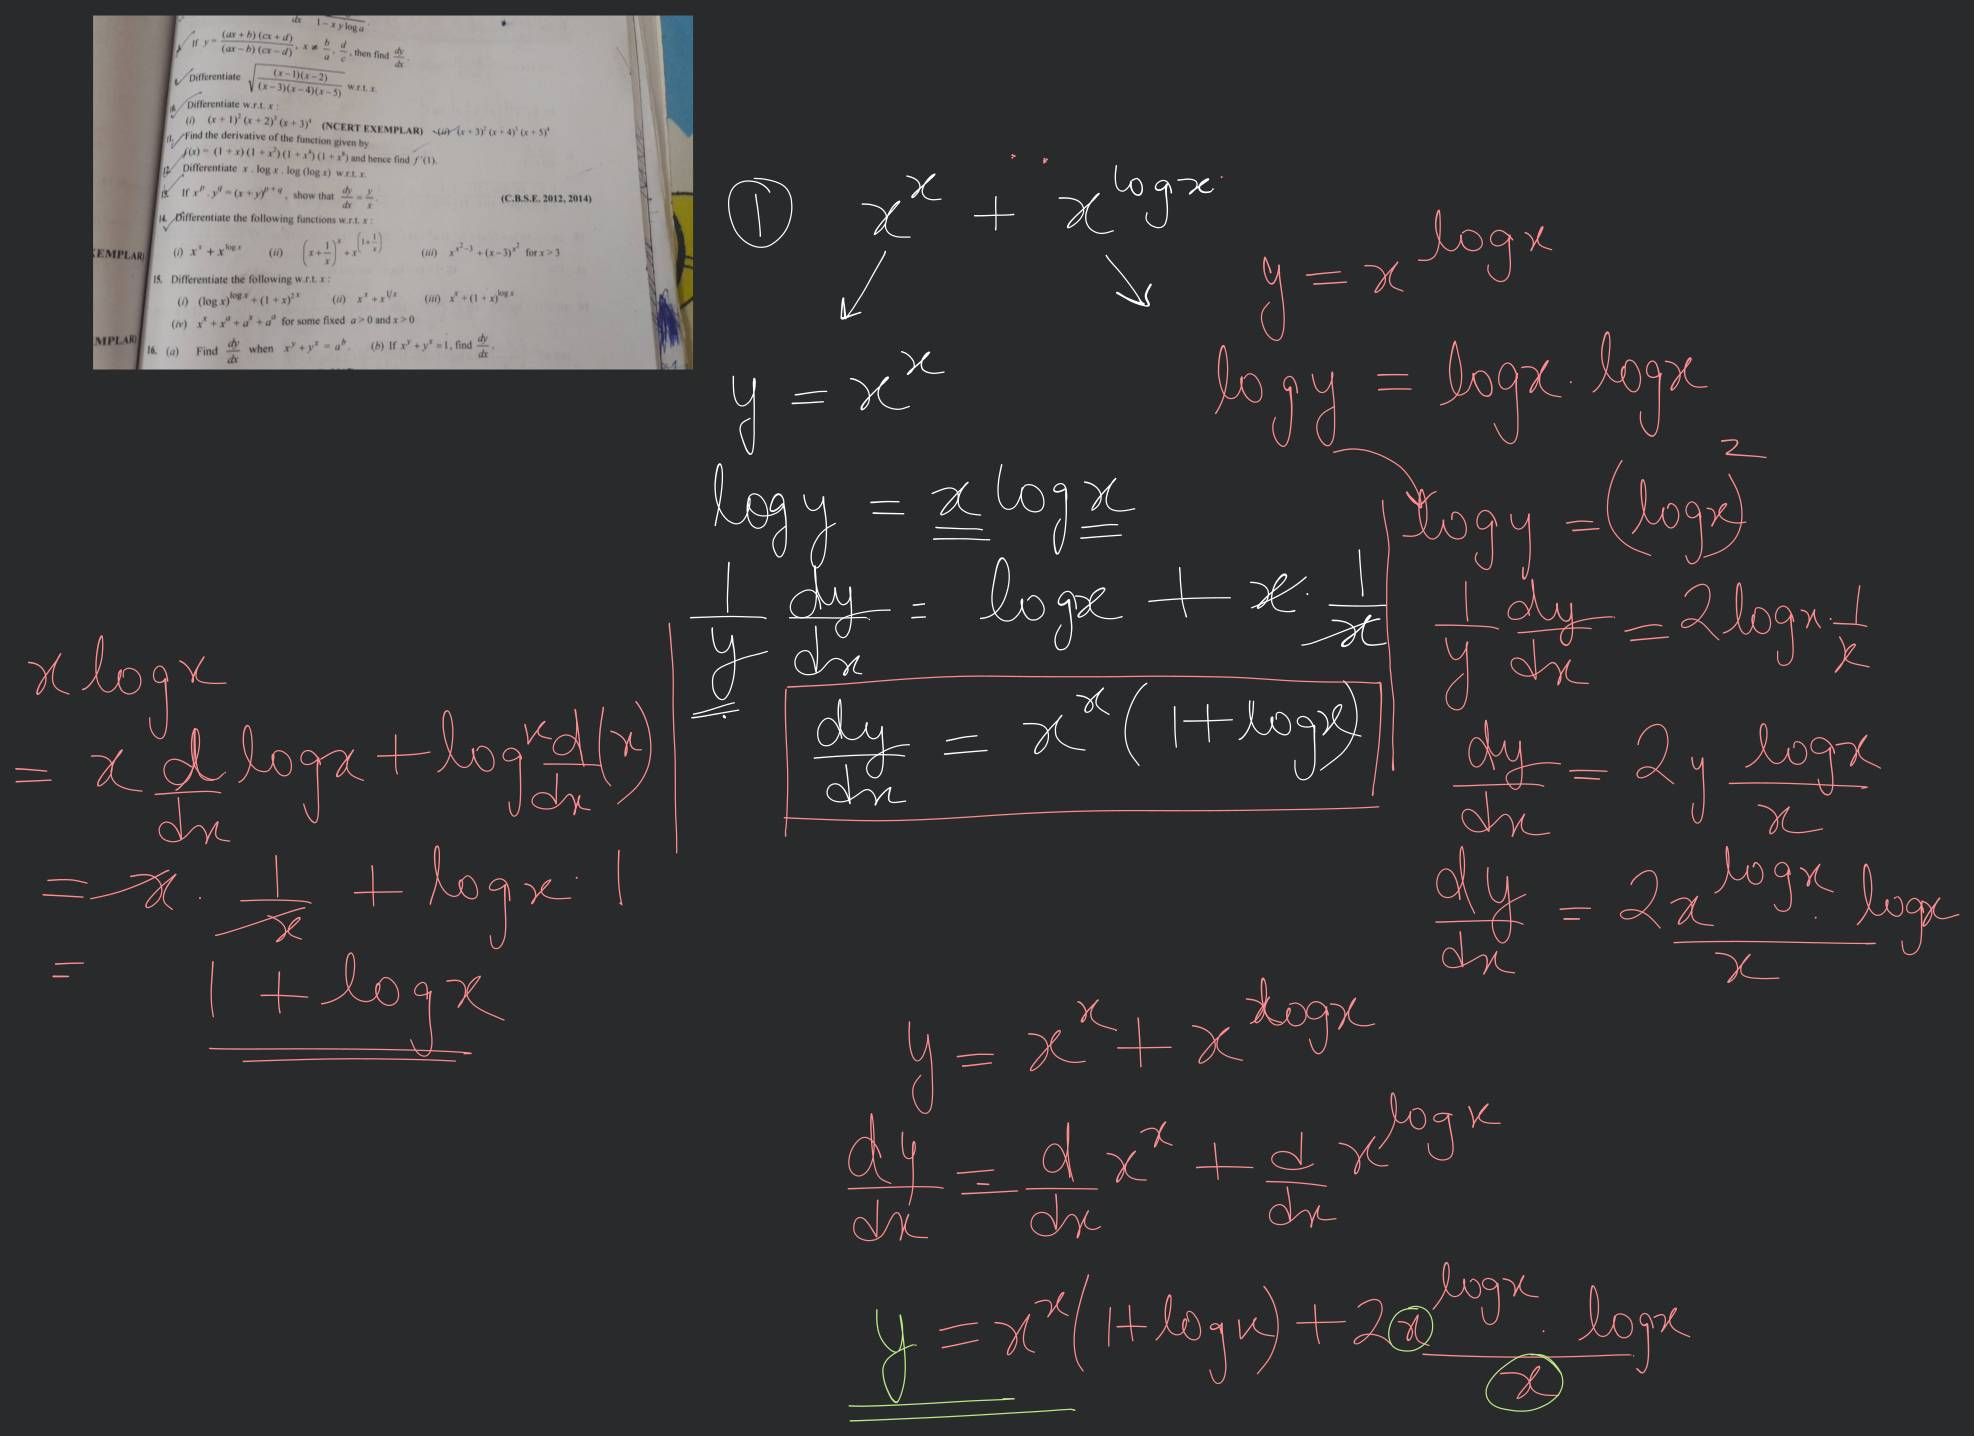 dx 1 – x y log a
If y = (ax + b) (cx + d) / (ax – b) (cx – d), x ≠ b/a, d/c, then find dy/dx.
Differentiate √((x – 1)(x – 2) / (x – 3)(x – 4)(x – 5)) w.r.t. x.
10. Differentiate w.r.t. x :
(i) (x + 1)² (x + 2)³ (x + 3)⁴ (NCERT EXEMPLAR) (ii) (x + 3)² (x + 4)³ (x + 5)⁴
11. Find the derivative of the function given by
f(x) = (1 + x) (1 + x²) (1 + x⁴) (1 + x⁸) and hence find f′(1).
12. Differentiate x . log x . log (log x) w.r.t. x.
13. If x^p . y^q = (x + y)^(p + q), show that dy/dx = y/x. (C.B.S.E. 2012, 2014)
14. Differentiate the following functions w.r.t. x :
EMPLAR) (i) x^x + x^(log x) (ii) (x + 1/x)^x + x^(1 + 1/x) (iii) x^(x² – 3) + (x – 3)^(x²) for x > 3
15. Differentiate the following w.r.t. x :
(i) (log x)^(log x) + (1 + x)^(2x) (ii) x^x + x^(1/x) (iii) x^x + (1 + x)^(log x)
(iv) x^x + x^a + a^x + a^a for some fixed a > 0 and x > 0
MPLAR) 16. (a) Find dy/dx when x^y + y^x = a^b. (b) If x^y + y^x = 1, find dy/dx.
① x^x + x^(log x)
y = x^x
log y = x log x
1/y dy/dx = log x + x · 1/x
dy/dx = x^x (1 + log x)
y = x^(log x)
log y = log x · log x
log y = (log x)²
1/y dy/dx = 2 log x · 1/x
dy/dx = 2y log x / x
dy/dx = 2x^(log x) · log x / x
x log x
= x d/dx log x + log x d/dx (x)
= x · 1/x + log x · 1
= 1 + log x
y = x^x + x^(log x)
dy/dx = d/dx x^x + d/dx x^(log x)
y = x^x (1 + log x) + 2x^(log x) · log x / x